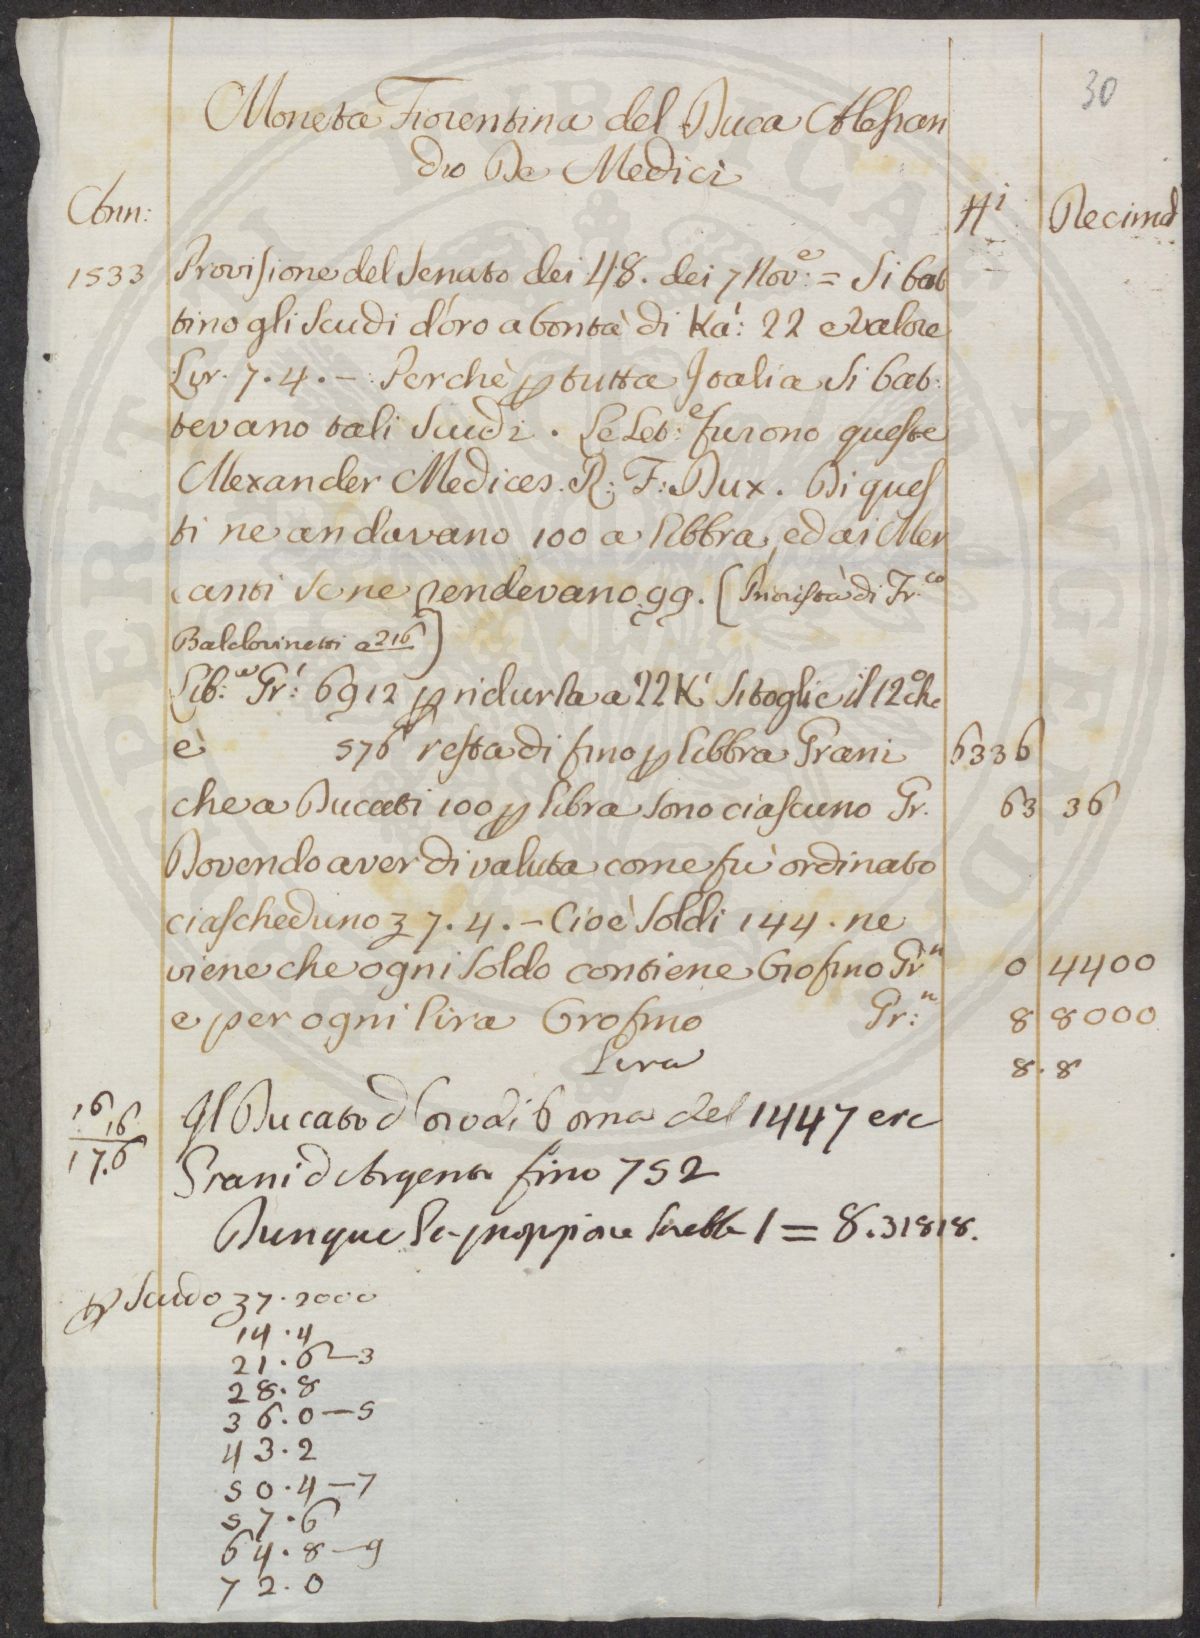 30
Moneta Fiorentina del Duca Alessan
dro De Medici
Ann:
Decimi
1533 Provisione del Senato dei 48. dei 7 Nov.e = Si bat
tino gli Scudi d'oro a bontà di Ka: 22 e valore
Lir. 7.4.– Perchè p tutta Italia si bat:
tevano tali Scudi. Le Let:e furono queste
Alexander Medices. R: F: Dux. Di ques
ti ne andavano 100 a libbra, ed ai Mer
canti se ne rendevano 99. [Priorista di Fr.co
Baldovinetti a 216]
Lib:a Gr: 6912 p ridurla a 22 K' si toglie il 12o che
è 576 resta di fino p libbra Grani 6336
che a Ducati 100 p libra sono ciascuno Gr. 63 36
Dovendo aver di valuta come fù ordinato
ciascheduno 7.4.– Cioè Soldi 144. ne
viene che ogni Soldo contiene Oro fino Grn 0 4400
e per ogni lira Oro fino Gr:n 8 8000
Lira 8.8
16
16
17.6
Il Ducato d'oro di Roma del 1447 era
Grani d'Argento fino 752
Dunque la proporzione sarebbe 1 = 8.31818.
p Scudo 7.2000
14.4
21.6–3
28.8
36.0–5
43.2
50.4–7
57.6
64.8–9
72.0
PERITI PUBLICAE AUGENDO